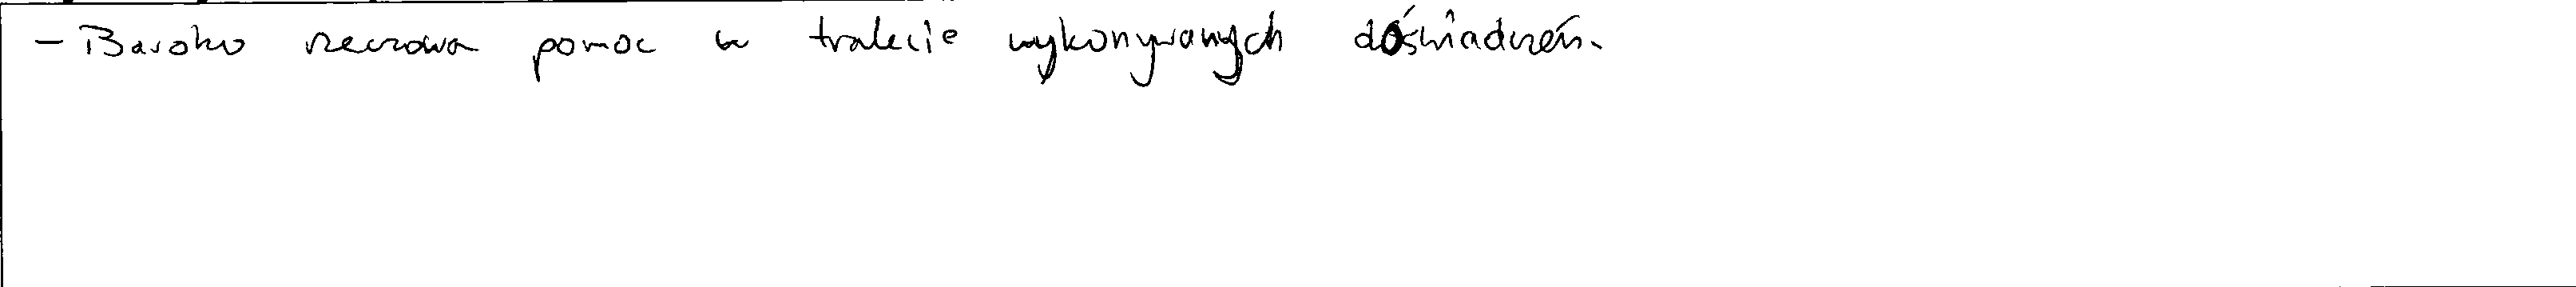 - Bardzo rzeczowa pomoc w trakcie wykonywanych doświadczeń.